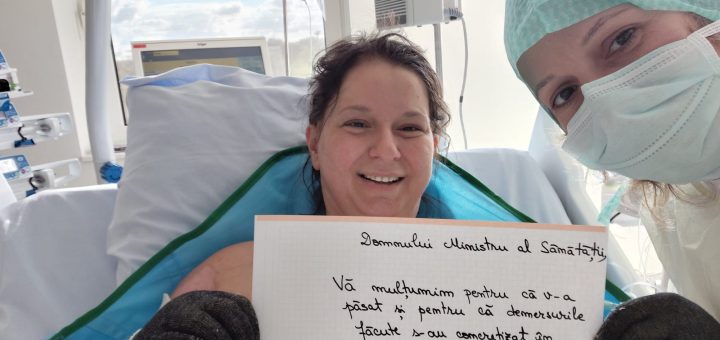 Domnului Ministru al Sămătății,
Vă mulțumim pentru că v-a
păsat și pentru că demersurile
făcute s-au concretizat în